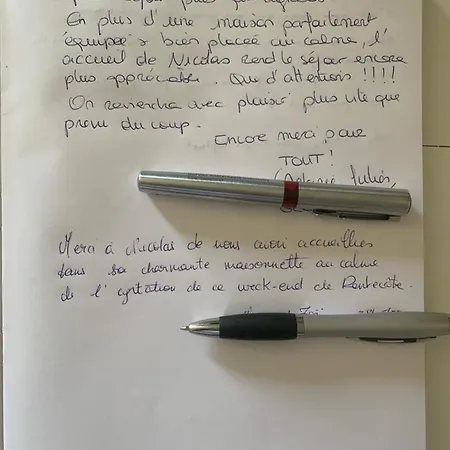 séjour
En plus d'une maison parfaitement
équipée & bien placée au calme, l'
accueil de Nicolas rend le séjour encore
plus appréciable. Que d'attentions !!!!
On reviendra avec plaisir plus vite que
prévu du coup.
Encore merci pour
TOUT !
Merci à Nicolas de nous avoir accueillies
dans sa charmante maisonnette au calme
de l'agitation de ce week-end de Pentecôte.